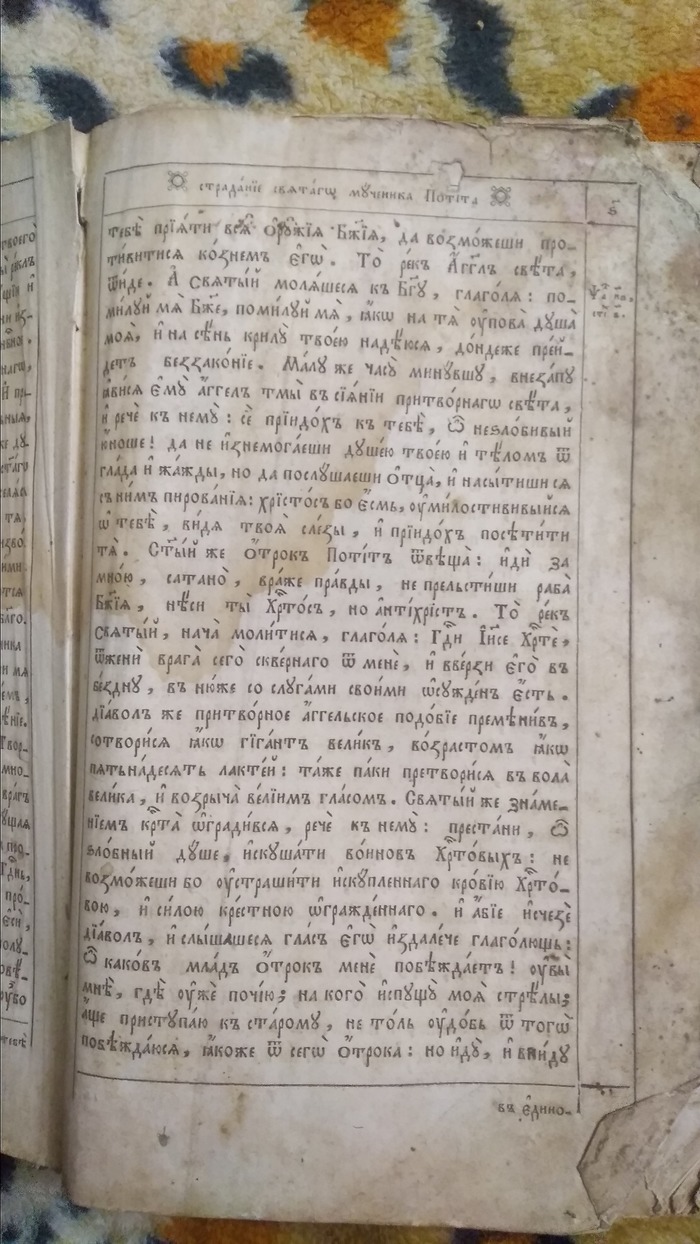 страда́нїе свята́гѡ мꙋ́ченика Поті́та
ѕ҃
тебѣ̀ прїя́ти вся̑ ѻ҆рꙋ̑жїя Бж҃їя, да возмо́жеши про-
ти́витися ко́знем є҆гѡ̀. То̀ ре́къ А҆́гг҃лъ свѣ́та,
ѿи́де. А҆ святы́й моля́шеся къ Бг҃ꙋ, глаго́ля: по-
ми́лꙋй мя̀ Бж҃е, поми́лꙋй мя̀, ꙗ҆́кѡ на тя̀ ᲂу҆пова̀ дꙋша̀
моя̀, и҆ на сѣ́нь крилꙋ̀ твоє́ю надѣ́юся, до́ндеже пре́й-
детъ беззако́нїе. Ма́лꙋ же часꙋ̀ минꙋ́вшꙋ, внеза́пꙋ
ꙗ҆ви́ся є҆мꙋ̀ а҆́ггелъ тмы̀ въ сїя́нїи притво́рнагѡ свѣ́та,
и҆ речѐ къ немꙋ̀: сѐ прїидо́хъ къ тебѣ̀, ѽ неѕло́бивый
ю҆́ноше! да не и҆знемога́еши дꙋше́ю твое́ю и҆ тѣ́ломъ ѿ
гла́да и҆ жа́жды, но да послꙋ́шаеши ѻ҆тца̀, и҆ насы́тиши ся
съ ни́мъ пирова́нїя: хрїсто́съ бо є҆́смь, ᲂу҆ми́лостививыйся
ѡ҆ тебѣ̀, ви́дя твоя̀ сле́зы, и҆ прїидо́хъ посѣти́ти
тя̀. Ст҃ы́й же ѻ҆́трокъ Поті́тъ ѿвѣща̀: и҆дѝ за
мно́ю, сатано̀, вра́же пра́вды, не прельсти́ши раба̀
Бж҃їя, нѣ́си ты̀ Хрⷭ҇то́съ, но а҆нті́хрїстъ. То̀ ре́къ
святы́й, нача̀ моли́тися, глаго́ля: Гдⷭ҇и І҆и҃се Хрⷭ҇тѐ,
ѿженѝ врага̀ сего̀ скве́рнаго ѿ менє̀, и҆ вве́рзи є҆го̀ въ
бе́зднꙋ, въ ню́же со слꙋга́ми свои́ми ѡ҆сꙋжде́нъ є҆́сть.
дїа́волъ же притво́рное а҆́ггельское подо́бїе премѣни́въ,
сотвори́ся ꙗ҆́кѡ гіга́нтъ вели́къ, во́зрастомъ ꙗ҆́кѡ
пятьна́десять лакте́й: та́же па́ки претвори́ся въ вола̀
вели́ка, и҆ возрыча̀ ве́лїимъ гла́сомъ. Святы́й же зна́ме-
нїемъ крⷭ҇та̀ ѡ҆гради́вся, речѐ къ немꙋ̀: преста́ни, ѽ
ѕло́бный дꙋ́ше, и҆скꙋша́ти во́иновъ Хрⷭ҇то́выхъ: не
возмо́жеши бо ᲂу҆страши́ти и҆скꙋпле́ннаго кро́вїю Хрⷭ҇то́-
вою, и҆ си́лою кре́стною ѡ҆гражде́ннаго. и҆ а҆́бїе и҆счезѐ
дїа́волъ, и҆ слы́шашеся гла́съ є҆гѡ̀ и҆здале́че глаго́лющъ:
ѽ како́въ мла́дъ ѻ҆́трокъ менѐ побѣжда́етъ! ᲂу҆вы̀
мнѣ̀, гдѣ̀ ᲂу҆́же почі́ю; на кого̀ и҆спꙋщꙋ̀ моя̀ стрѣ́лы;
а҆́ще пристꙋпа́ю къ ста́ромꙋ, не то́ль ᲂу҆до́бь ѿ тогѡ̀
побѣжда́юся, ꙗ҆́коже ѿ сегѡ̀ ѻ҆́трока: но и҆дꙋ̀, и҆ вни́дꙋ
въ є҆ди́но-